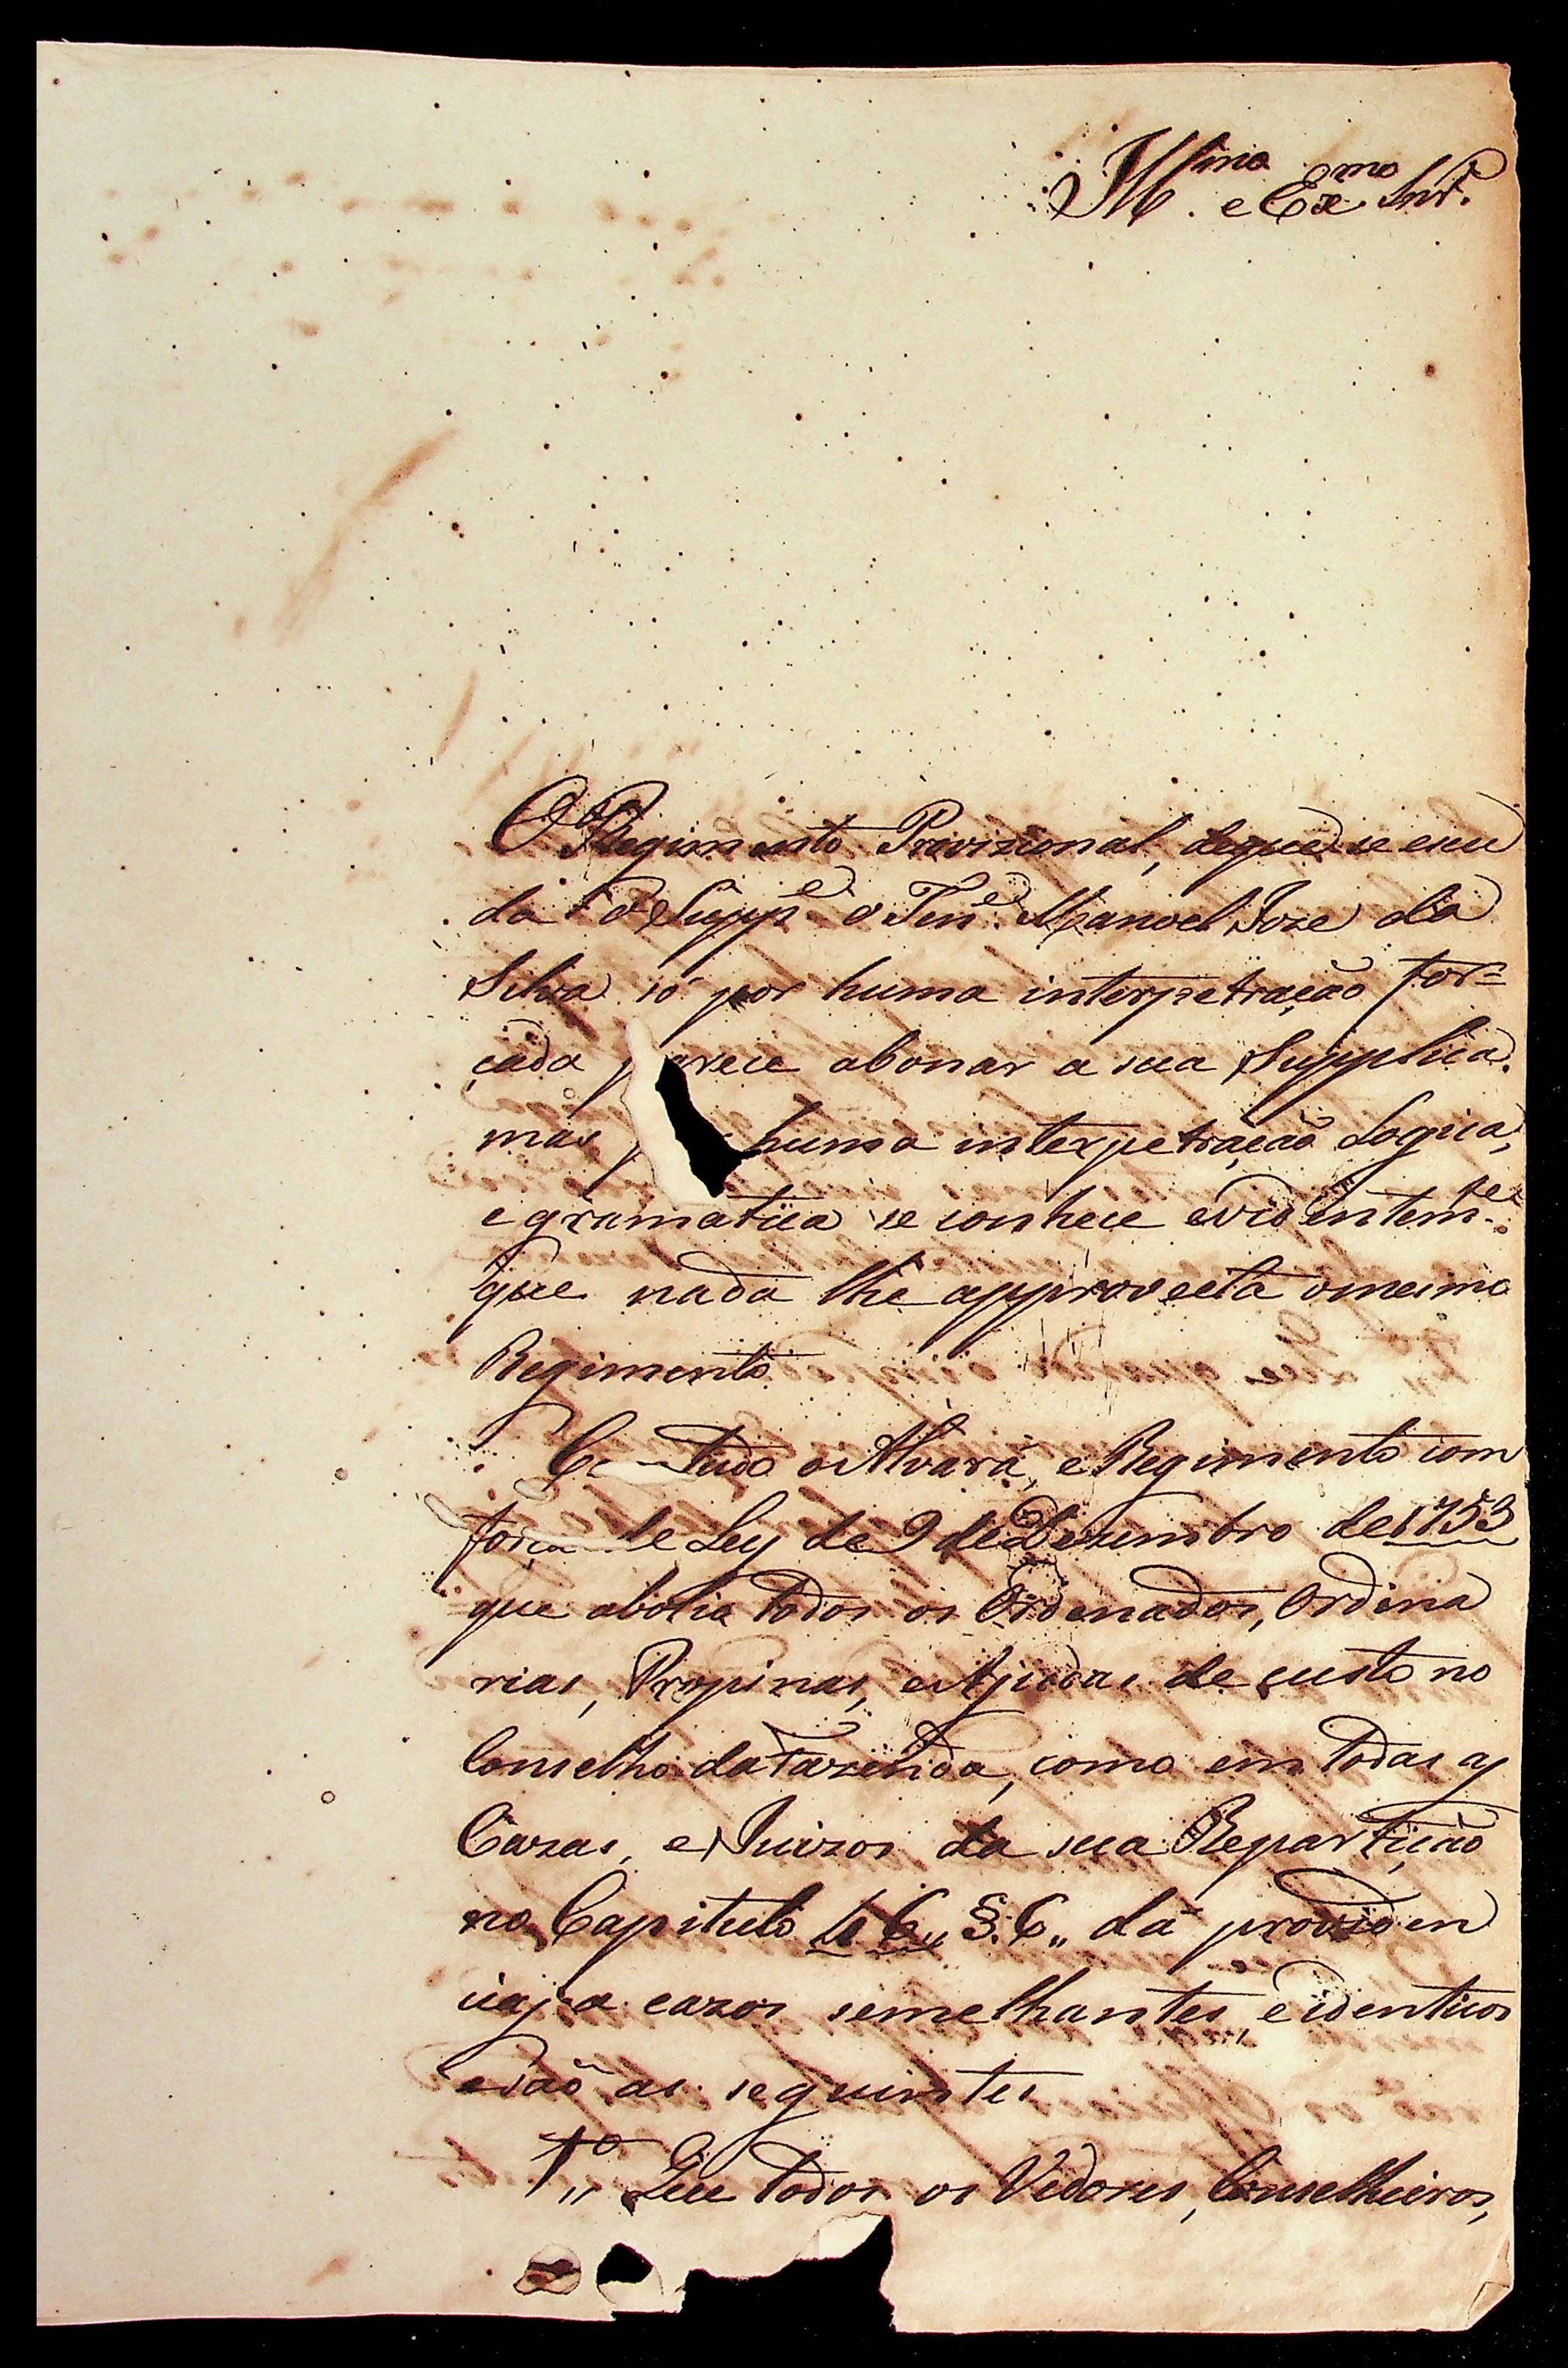 Illmo. e Exmo. Snr.
O Regimento Provizional, de que se escu
da o Suppe. o Tene. Manoel Joze da
Silva só por huma interpetração for=
çada parece abonar a sua Supplica.
mas huma interpetração Logica,
e gramatica se conhece evidentemte.
que nada lhe approveita o mesmo
Regimento.
Contudo o Alvará, e Regimento com
força de Ley de 9 de Dezembro de 1753
que abolio todos os Ordenados, Ordina
rias, Propinas, e Ajudas de custo no
Conselho da Fazenda, como em todas as
Cazas, e Juizos da sua Repartição
no Capitulo 46,, §. 6,, dá providen
cias a cazos semelhantes, e identicos
e são as seguintes
1º,, Que todos os Vedores, Conselheiros,